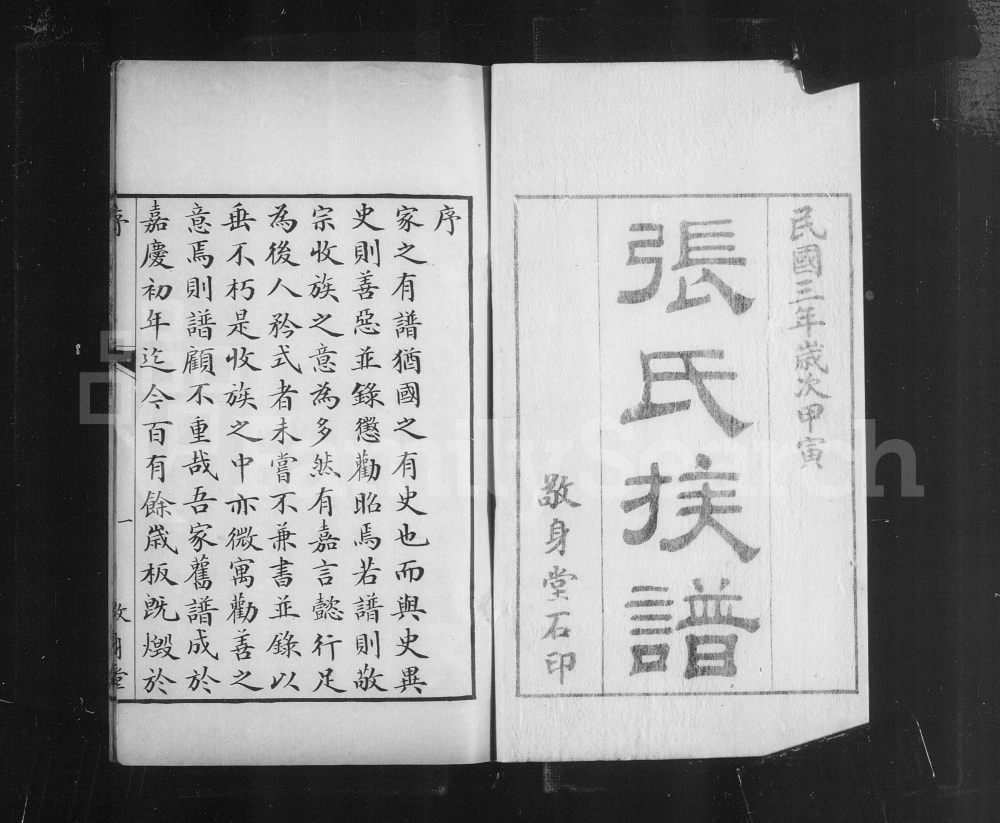 民國三年歲次甲寅
張氏族譜
敬身堂石印
序
家之有譜猶國之有史也而與史異
史則善惡並錄懲勸昭焉若譜則敬
宗收族之意為多然有嘉言懿行足
為後人矜式者未嘗不兼書並錄以
垂不朽是收族之中亦微寓勸善之
意焉則譜顧不重哉吾家舊譜成於
嘉慶初年迄今百有餘歲板既燬於
序
一
FamilySearch